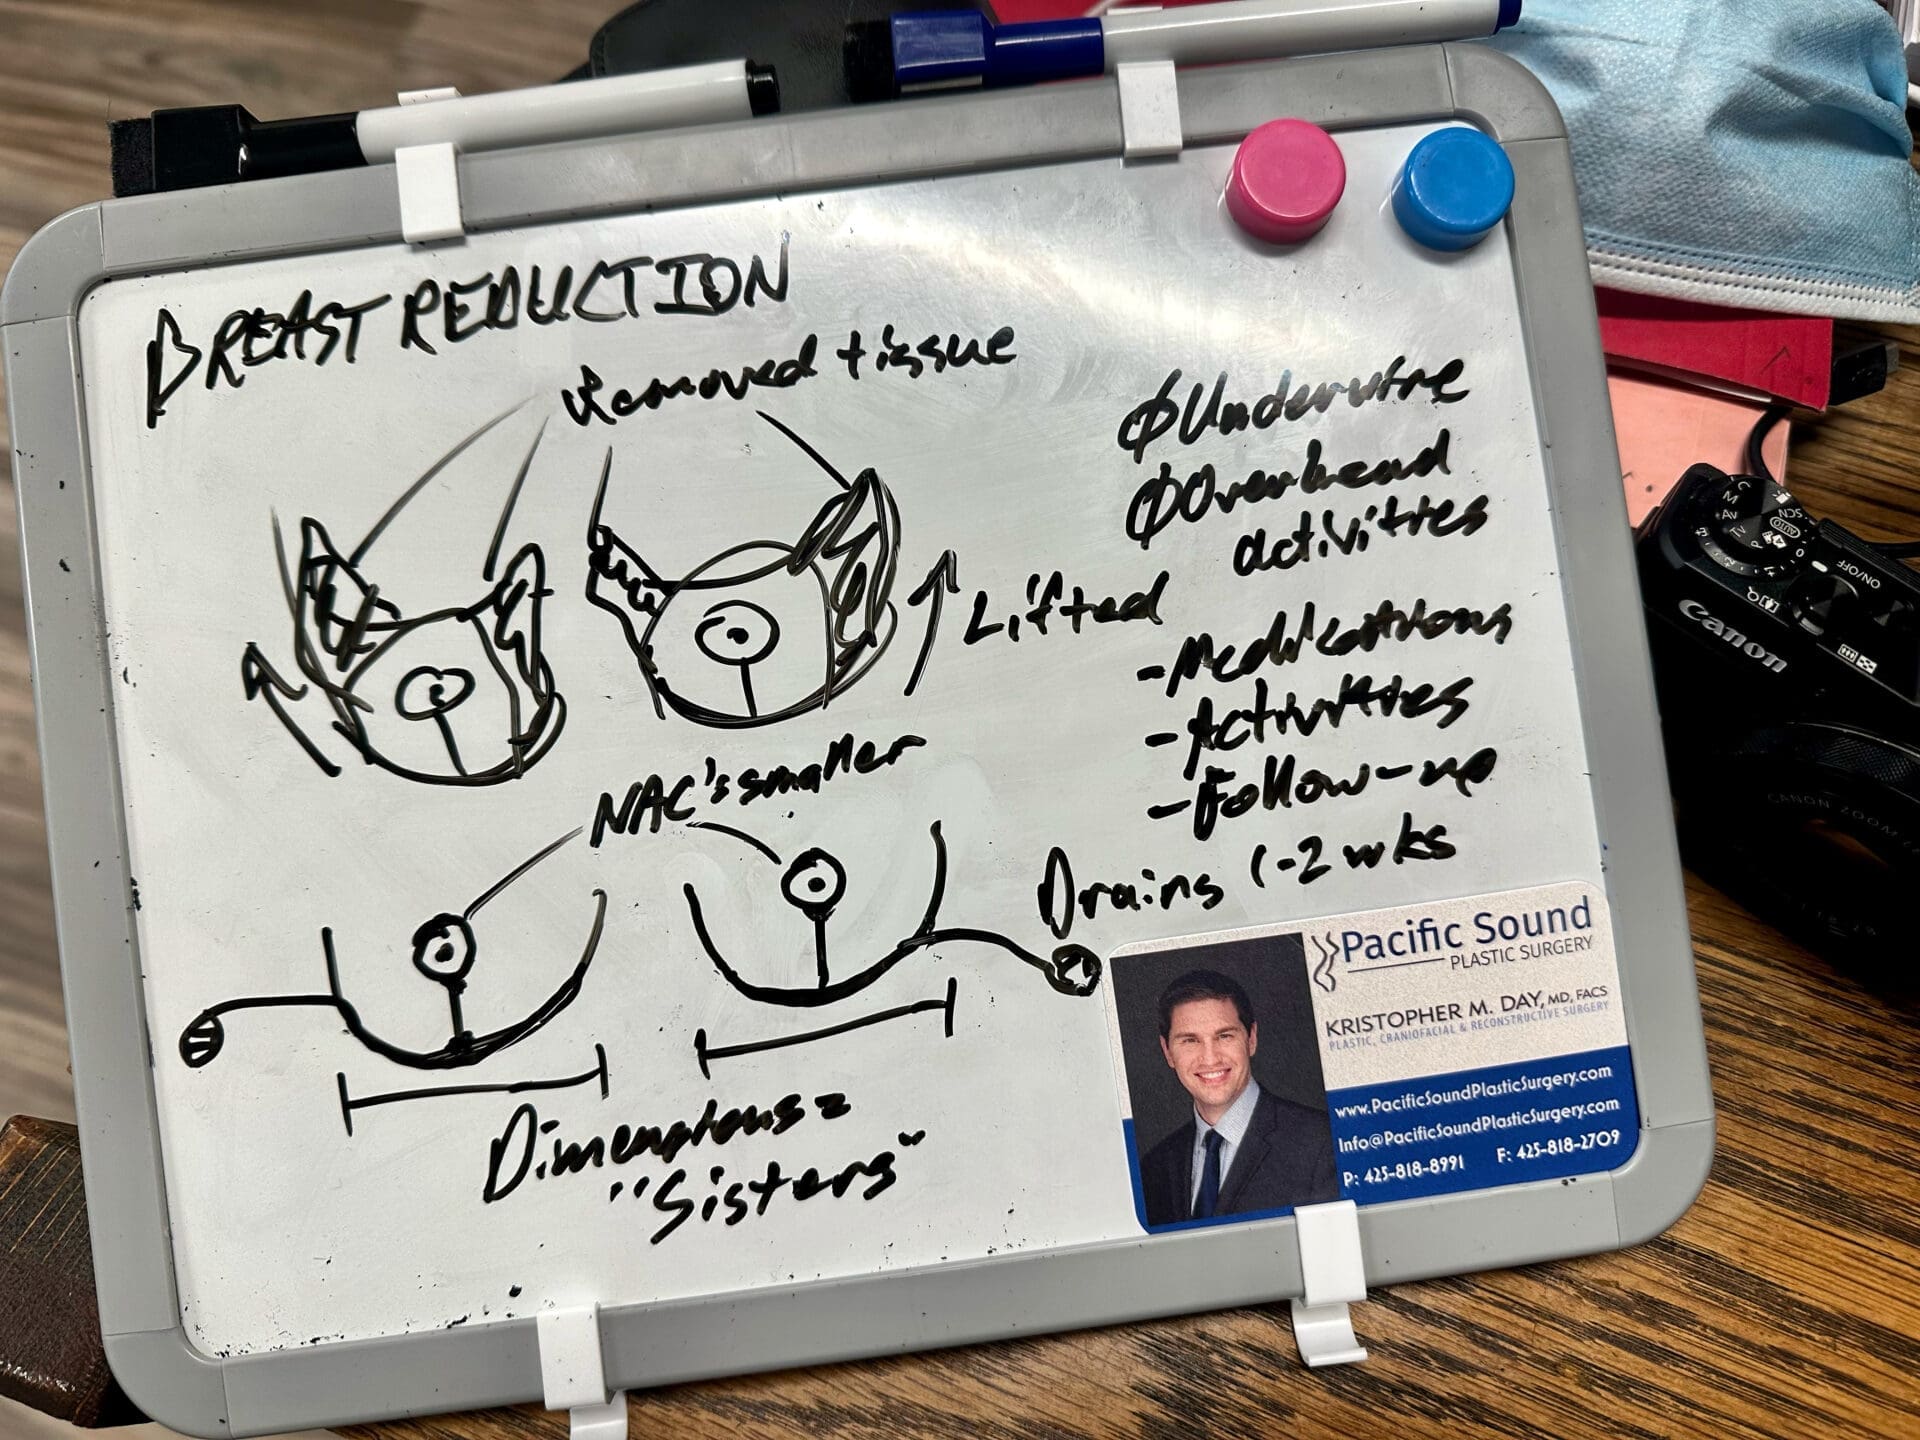 BREAST REDUCTION
Removed tissue
ØUnderwire
ØOverhead
activities
Lifted
-Medications
-Activities
-Follow-up
NAC's smaller
Drains 1-2 wks
Dimensions =
"Sisters"
Pacific Sound
PLASTIC SURGERY
KRISTOPHER M. DAY, MD, FACS
PLASTIC, CRANIOFACIAL & RECONSTRUCTIVE SURGERY
www.PacificSoundPlasticSurgery.com
Info@PacificSoundPlasticSurgery.com
P: 425-818-8991 F: 425-818-2709
Canon
ON/OFF
AUTO
SCN
C
M
Av
Tv
P
CANON ZOOM